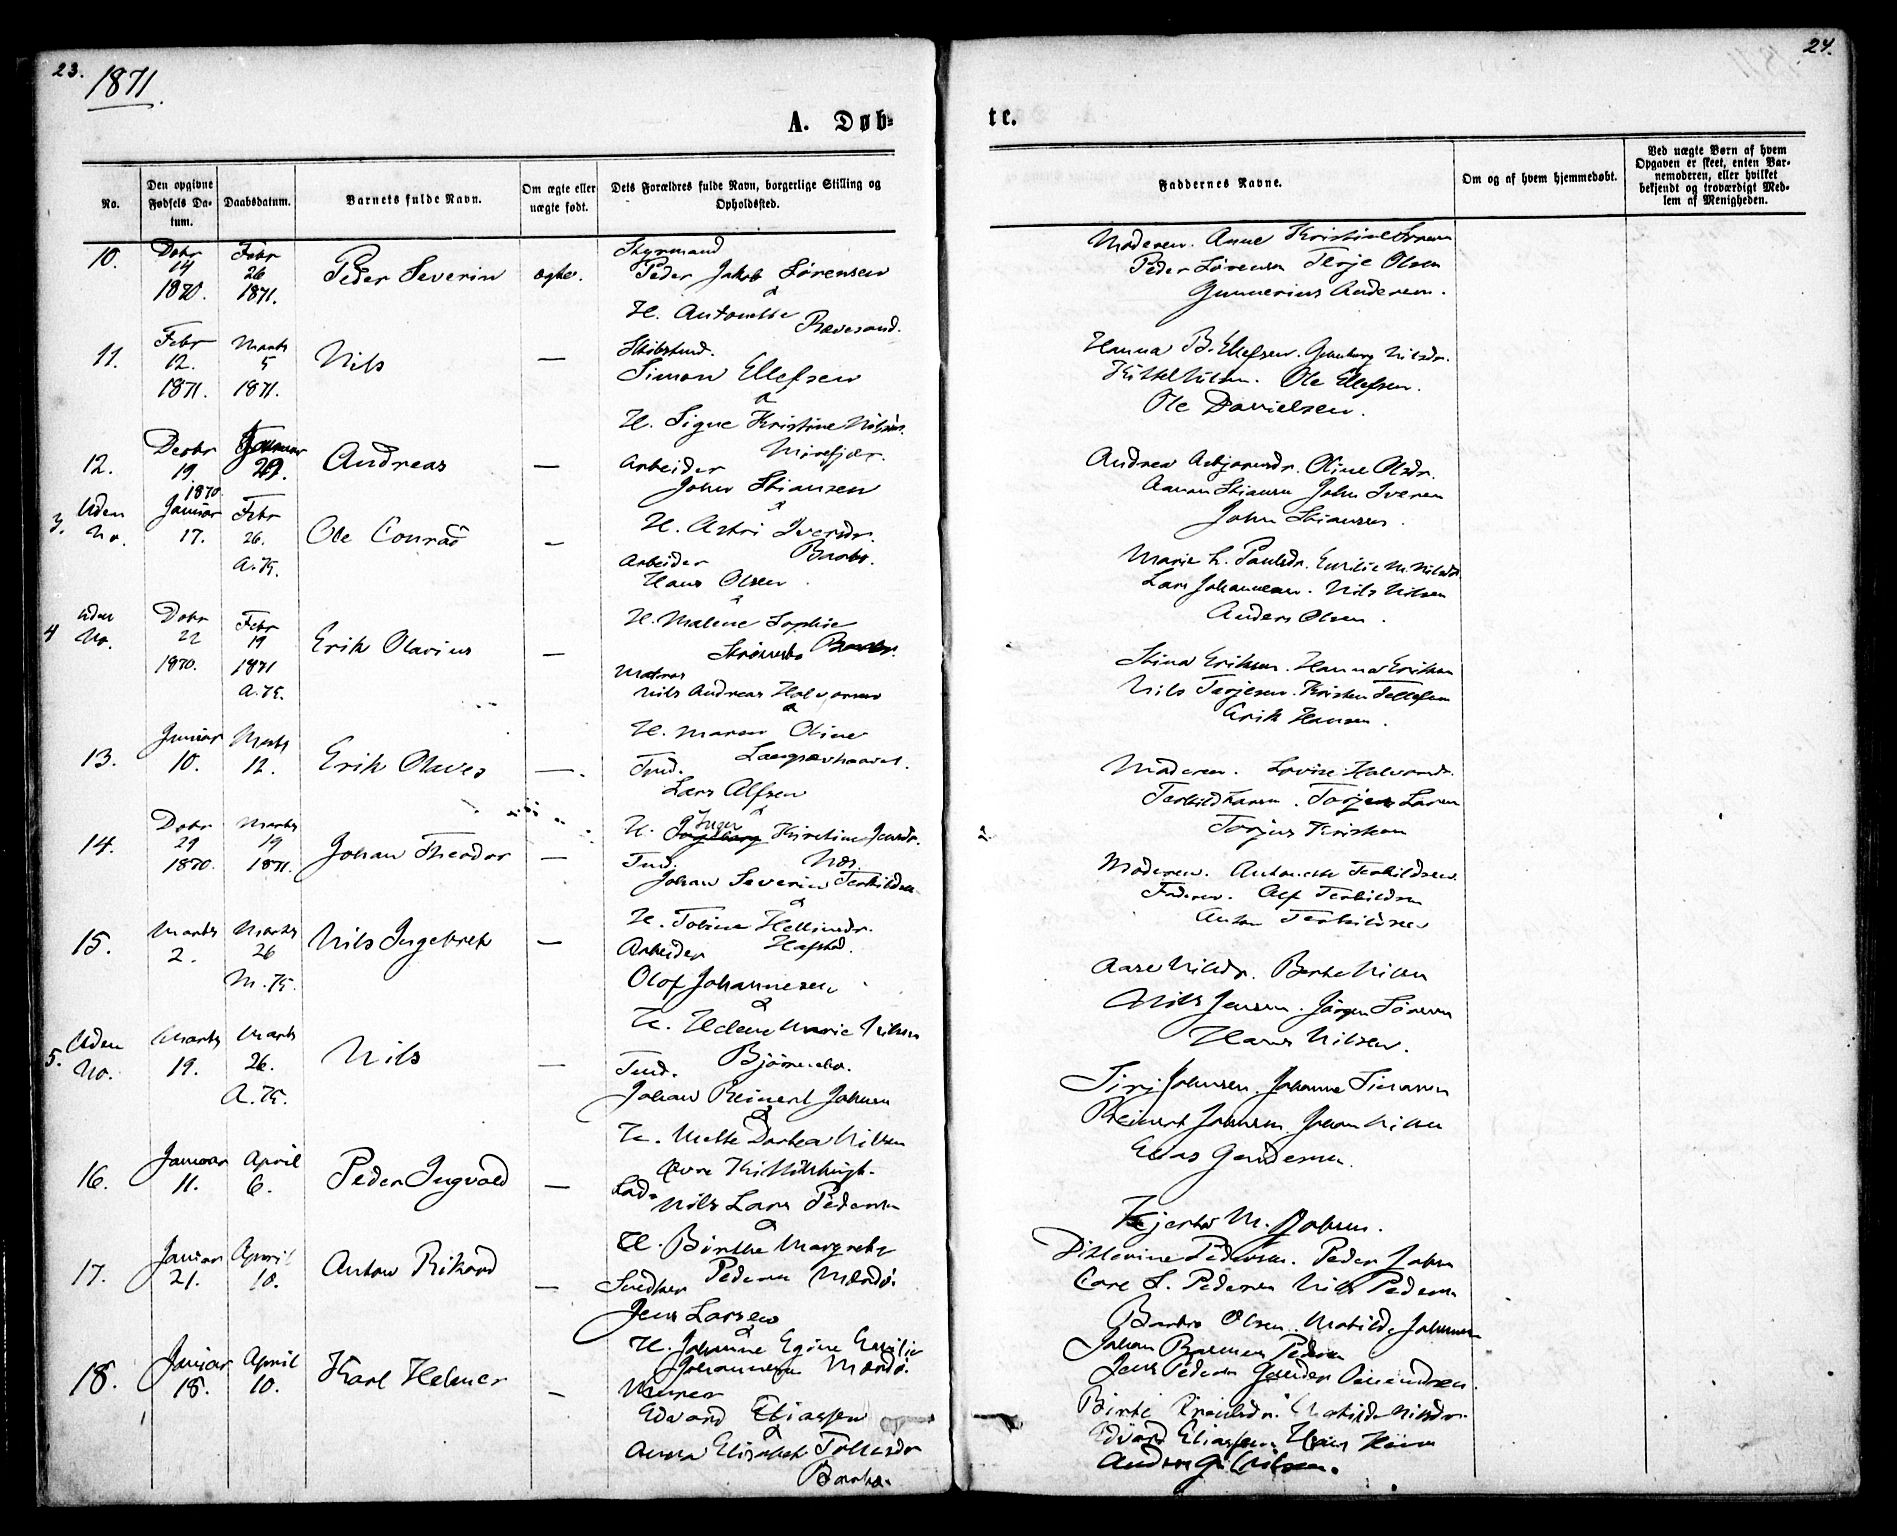 23.
1871
A. Døb-
No.
Den opgivne Fødsels Da-tum.
Daabsdatum.
Barnets fulde Navn.
Om ægte eller uægte født.
Dets Forældres fulde Navn, borgerlige Stilling og Opholdssted.
10.
Debr 14 1870.
Febr 26 1871.
Peder Severin
ægte.
Styrmand
Peder Jakob Sørensen
&
H. Antonette
Revesand.
11.
Febr 12. 1871.
Marts 5 1871.
Nils
—
Skibstmd.
Simon Ellefsen
&
H. Signe Kristine Nilsen.
12.
Decbr 19. 1870
29.
Andreas
—
Arbeider
John Stiansen
&
H. Astri Iversdr.
3. Uden No.
Januar 17.
Febr 26. A.K.
Ole Conrad
—
Arbeider
Hans Olsen
&
H. Malene Sophie
4 Uden No.
Debr 22 1870.
Febr 19 1871 A.K.
Erik Olavius
—
Matros
Nils Andreas Halvorsen
&
H. Maren Oline
13.
Januar 10.
Marts 12.
Erik Olaves
—
Tmd.
Lars Alfsen
&
H. Inger Kirstine Jensdr.
Næs
14.
Debr 29 1870.
Marts 19 1871.
Johan Theodor
—
Tmd.
Johan Severin Terkildsen
&
H. Tobine
15.
Marts 2.
Marts 26 M.K.
Nils Ingebret
—
Arbeider
Olof Johannesen
&
H. Helene Marie Nilsen
5. Uden No.
Marts 19.
Marts 26. A.K.
Nils
—
Tmd.
Johan Reinert Johnsen
&
H. Mette Dorthea Nilsen
16.
Januar 11.
April 6.
Peder Ingvald
—
Lods
Nils Lars Pedersen
&
H. Birthe Margrethe
Pedersen Mærdø.
17.
Januar 21.
April 10.
Anton Rikard
—
Snedker
Jens Larsen
&
H. Johanne Egine Emilie
Johannesen Mærdø.
18.
Januar 18.
April 10.
Karl Helmer
—
Murer
Edvard Eliassen
&
Anna Elisabet Tollisdr
24.
te.
Faddernes Navne.
Om og af hvem hjemmedøbt.
Ved uægte Børn af hvem Opgaven er skeet, enten Bar-nemoderen, eller hvilket bekjendt og troværdigt Med-lem af Menigheden.
Moderen. Anne Kristine
Peder Sørensen Terje Olsen
Gunnerius Andersen.
Hanna B. Ellefsen. Gunborg Nilsdr.
Kittel Nilsen. Ole Ellefsen.
Ole Danielsen.
Andrea Asbjørnsdr. Oline Olsdr.
Aanon Stiansen John Iversen
John Stiansen.
Marie L. Paulsdr. Emilie M. Nilsdr
Lars Johannesen. Nils Nilsen
Anders Olsen.
Stina Eriksen. Hanna Eriksen
Nils Terjesen. Kristen Tellefsen
Erik Hansen.
Moderen. Lovise Halvorsdr.
Terkild Hansen. Torjus Larsen
Torjus Kristensen
Moderen. Antonette Terkildsen.
Faderen. Alf Terkildsen
Anton Terkildsen
Aase Nilsdr. Berte Nilsen
Nils Jensen. Jørgen Sørensen
Hans Nilsen.
Siri Johnsen. Johanne Simonsen
Reinert Johnsen. Johan Nilsen
Elias Gundersen.
M. Johnsen.
Pedersen. Peder Johnsen
Carl L. Pedersen Nils Pedersen
Barbro Olsen. Matilde Johnsen
Johan Pedersen
Jens Pedersen Gunder
Matilde Nilsdr.
Edvard Eliassen. Hans
Anders G. Nilsen.